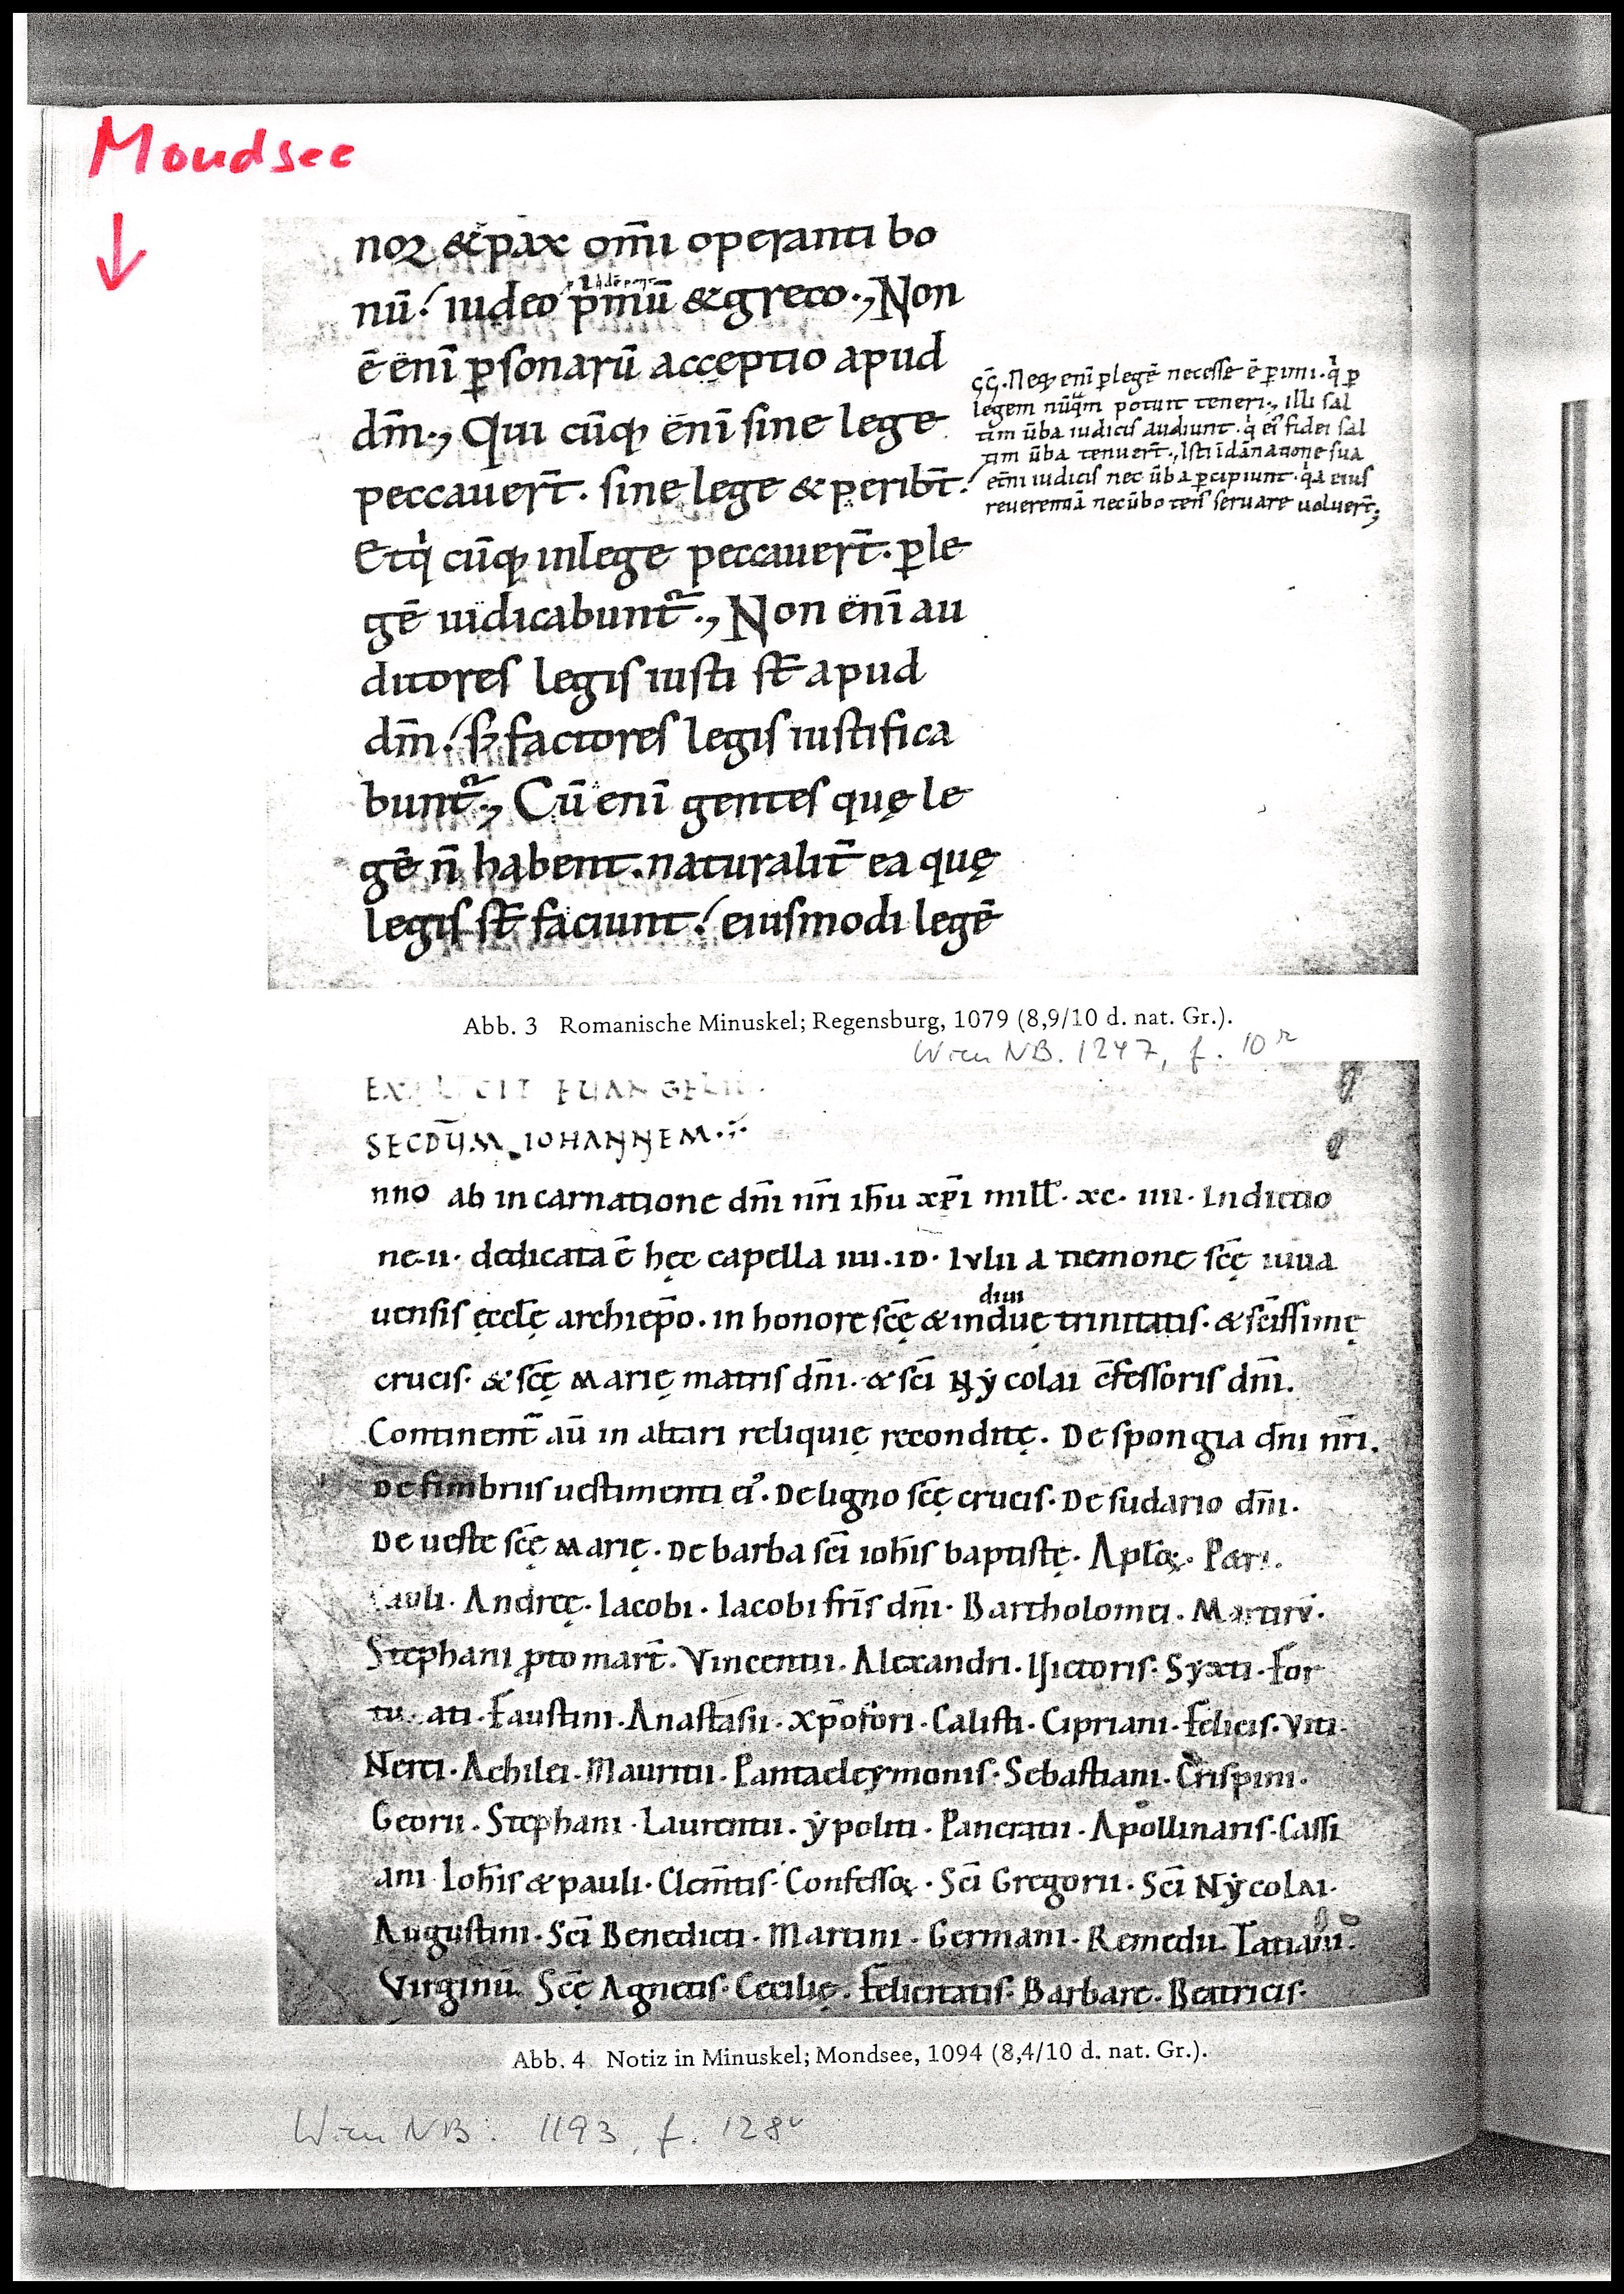 Mondsee
noꝝ &pax om̄i operanti bo
nū! iudeo p̄mū &greco., Non
ē ēnī ꝑsonarū acceptio apud
dm̄., Qui cūqꝫ ēnī sine lege
peccauer̄t. sine lege & peribt̄!
Etq̇ cūqꝫ inlege peccauer̄t. ꝑle
gē iudicabunt̄., Non ēnī au
ditores legis iusti st̄ apud
dm̄! sꝫ factores legis iustifica
bunt̄., Cū enī gentes quę le
gē n̄ habent. naturalit̄ ea quę
legis st̄ faciunt! eiusmodi legē
Neqꝫ enī ꝑlegē necesse ē ꝑimi. q̇ ꝑ
legem nūq̄m potuit teneri., illi sal
tim ūba iudicis audiunt. q̇ ei fidei sal
tim ūba tenuer̄t., Isti īdānatione sua
et̄ni iudicis nec ūba ꝑcipiunt. q̇a eius
reuerentiā necūbo ten' seruare uoluer̄t;
Abb. 3 Romanische Minuskel; Regensburg, 1079 (8,9/10 d. nat. Gr.).
Wien NB. 1247, f. 10r
EXPLICIT EUANGELIU
SECDŪM IOHANNEM
nno ab incarnatione dn̄i nr̄i ih̄u xp̄i mill̄. xc. iiii. Indictio
ne.ii. dedicata ē hęc capella iiii.ID. Iulii a tiemone scę̄ iuua
uensis ęccl̄ę archiep̄o. in honore scę̄ & indiuiduę trinitatis. & sc̄issimę
crucis. & scę̄ Marię matris dn̄i. & sc̄i Nẏcolai c̄fessoris dn̄i.
Continent̄ aū in altari reliquię reconditę. De spongia dn̄i nr̄i.
De fimbriis uestimenti ei᾽. De ligno scę̄ crucis. De sudario dn̄i.
De ueste scę̄ Marię. De barba sc̄i ioh̄is baptistę. Apl̄oꝝ. Petri.
Pauli. Andreę. Iacobi. Iacobi fr̄is dn̄i. Bartholomei. Martirū.
Stephani ꝓtomart̄. Vincentii. Alexandri. Victoris. Syxti. For
tunati. Faustini. Anastasii. xp̄ofori. Calisti. Cipriani. Felicis. Viti.
Nerei. Achilei. Mauritii. Pantaleymonis. Sebastiani. Crispini.
Georii. Stephani. Laurentii. ẏpoliti. Pancratii. Apollinaris. Cassi
ani Ioh̄is & pauli. Clem̄tis. Confessoꝝ. Sc̄i Gregorii. Sc̄i Nẏcolai.
Augustini. Sc̄i Benedicti. Martini. Germani. Remedii. Tatiani.
Virginū. Scę̄ Agnetis. Cecilię. Felicitatis. Barbare. Beatricis.
Abb. 4 Notiz in Minuskel; Mondsee, 1094 (8,4/10 d. nat. Gr.).
Wien NB. 1193, f. 128v